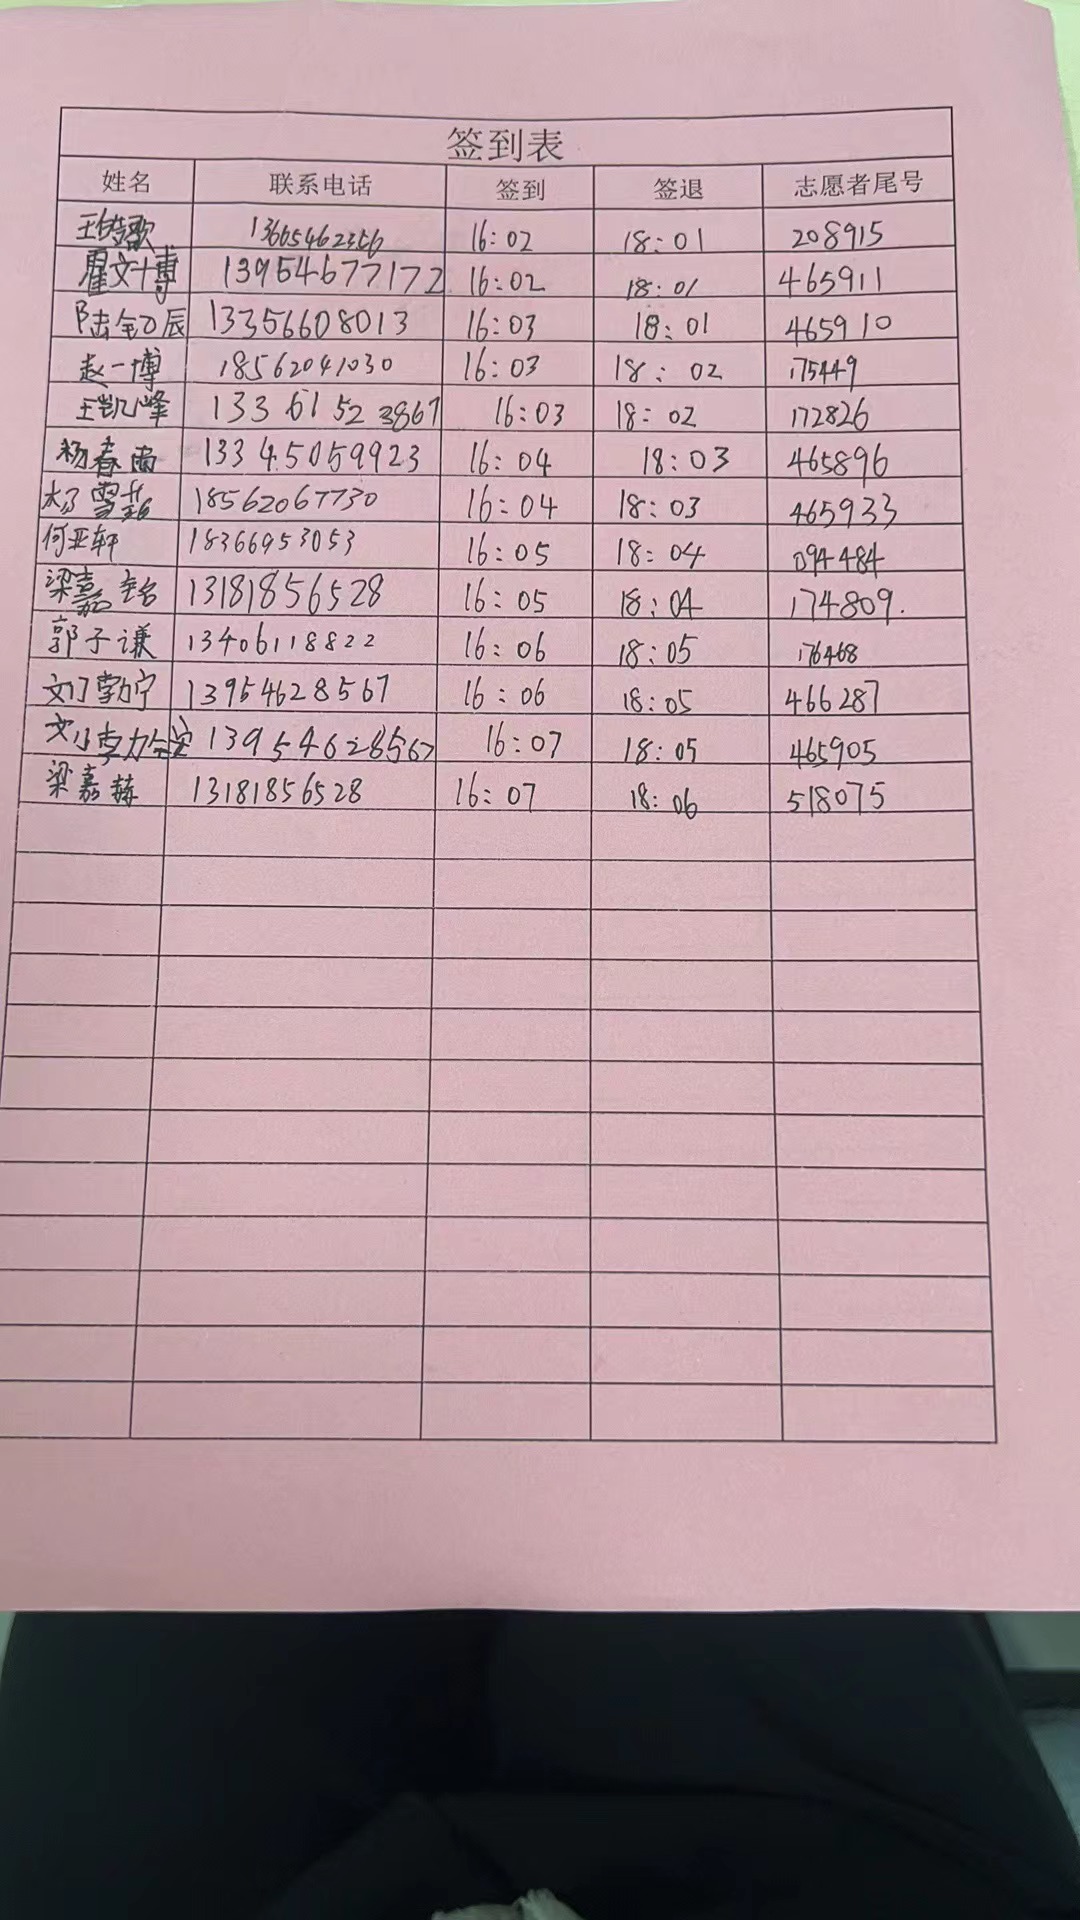 签到表
姓名 联系电话 签到 签退 志愿者尾号
王 歌 13665462356 16:02 18:01 208915
翟文博 13954677172 16:02 18:01 465911
陆 辰 13356608013 16:03 18:01 465910
赵一博 18562041030 16:03 18:02 175449
王凯峰 13361523867 16:03 18:02 172826
杨春雨 13345059923 16:04 18:03 465896
雪茹 18562067730 16:04 18:03 465933
何亚轩 18366953053 16:05 18:04 094484
梁嘉铭 13181856528 16:05 18:04 174809.
郭子谦 13406118822 16:06 18:05 176468
宁 13954628567 16:06 18:05 466287
13954628567 16:07 18:05 465905
梁嘉赫 13181856528 16:07 18:06 518075